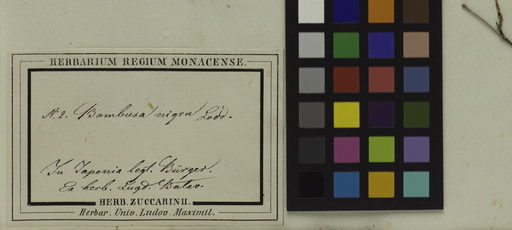 HERBARIUM REGIUM MONACENSE.
N. 2. Bambusa nigra Lodd.
In Japonia legt. Bürger.
Ex herb. Lugd. Batav.
HERB. ZUCCARINII.
Herbar. Univ. Ludov. Maximil.